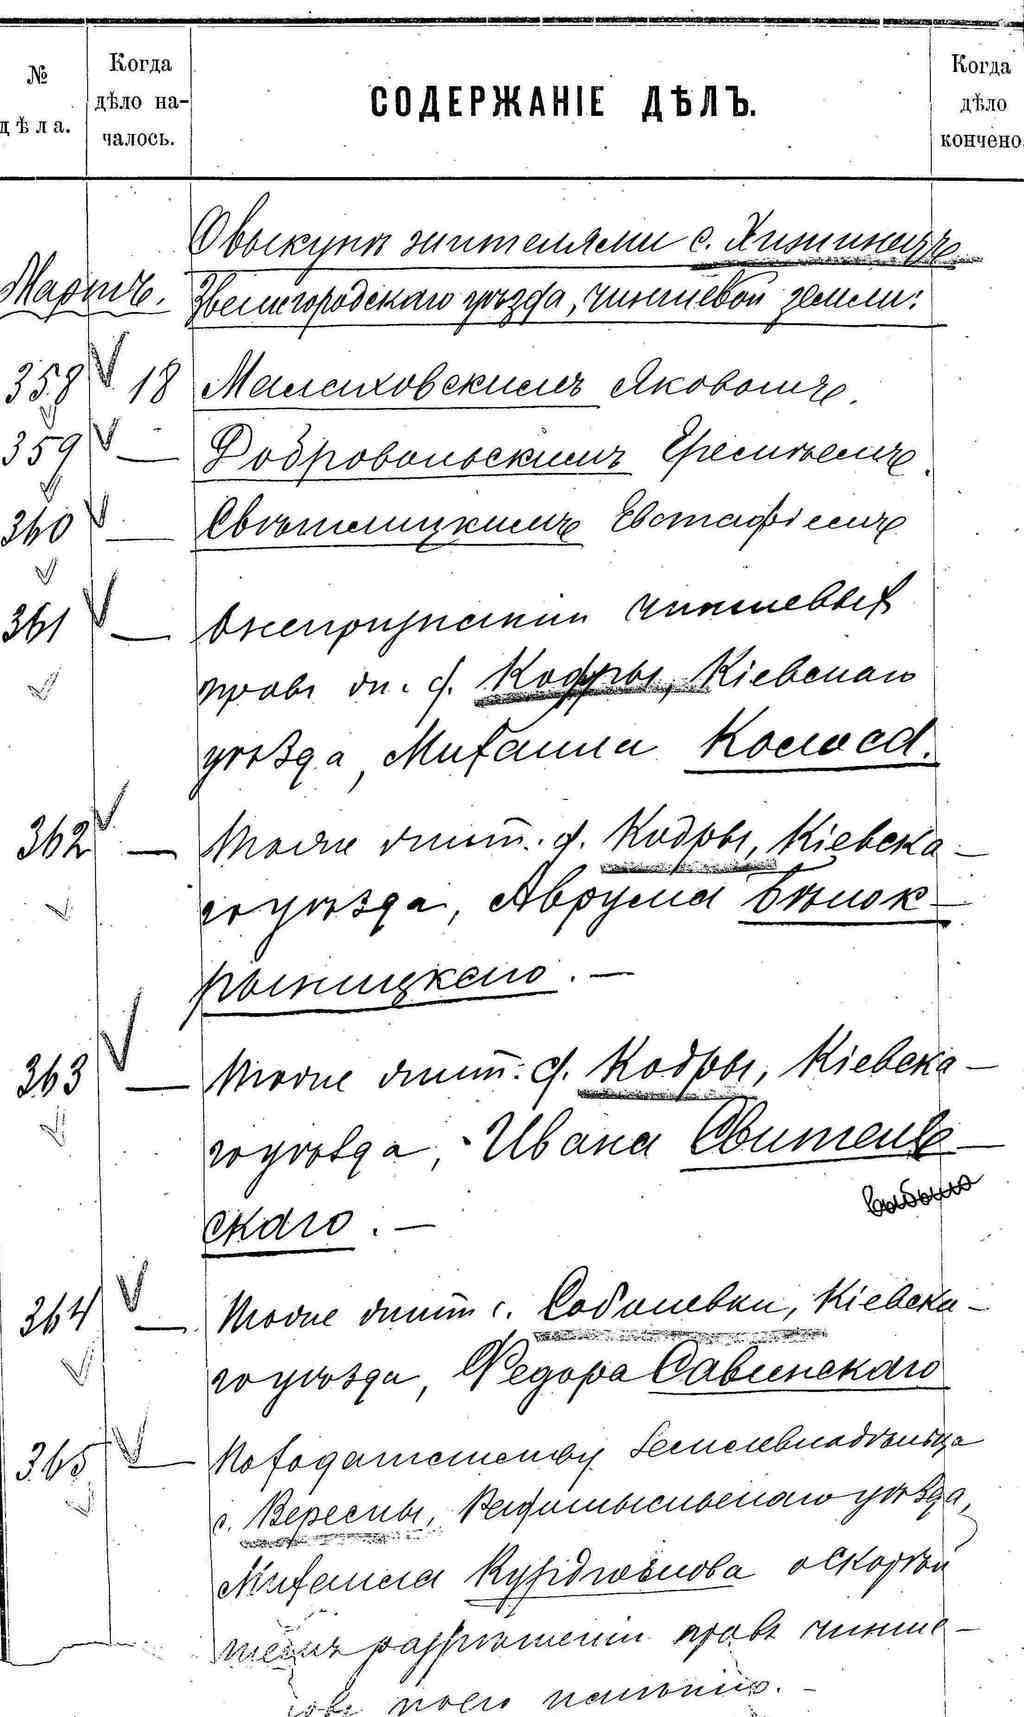 № дѣла.
Когда дѣло на-
чалось.
СОДЕРЖАНІЕ ДѢЛЪ.
Когда дѣло кончено
О выкупѣ жителями с. Хижинецъ
Мартъ.
Звенигородскаго уѣзда, чиншевой земли:
358 18 Малаховскимъ Яковомъ.
359 — Добровольскимъ Еремѣемъ.
360 — Свѣтлицкимъ Евстафіемъ
361 — О непризнаніи чиншевыхъ
правъ жи. с. Кодры, Кіевскаго
уѣзда, Михаила Колоса.
362 — Тоже жит. с. Кодры, Кіевска-
го уѣзда, Аврума Бѣлок-
рыницкаго. —
363 — Тоже жит. с. Кодры, Кіевска-
го уѣзда, Ивана Свителе-
скаго. —
выбыло
364 — Тоже жит с. Соболевки, Кіевска-
го уѣзда, Федора Савинскаго
365 — По ходатайству землевладѣльца
с. Вересны, Радомысльскаго уѣзда,
Михаила о скорѣй
шемъ разрѣшеніи правъ чинше-
по его имѣнію. —